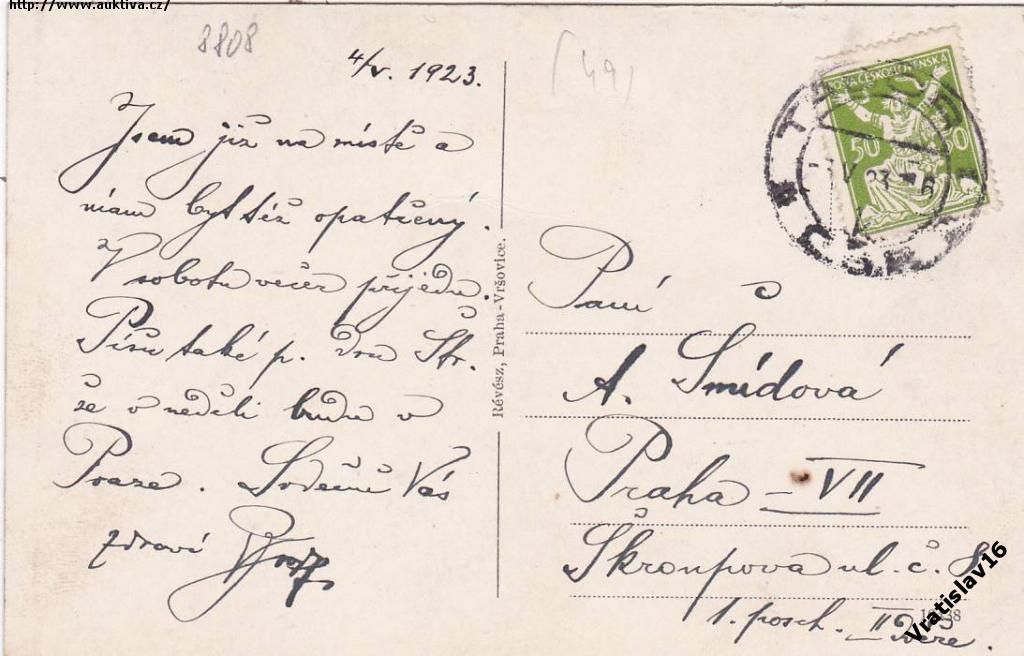 http://www.auktiva.cz/
8808
4/V. 1923.
Jsem již na místě a
mám byt též opatřený.
V sobotu večer přijedu.
Píšu také p. dru Štr.
že v neděli budu v
Praze. Srdečně Vás
zdraví
Révész, Praha-Vršovice.
(49)
ČESKOSLOVENSKÁ
50 50
Paní
A. Šmídová
Praha - VII
Škroupova ul. č. 8
1. posch. II dveře.
Vratislav16